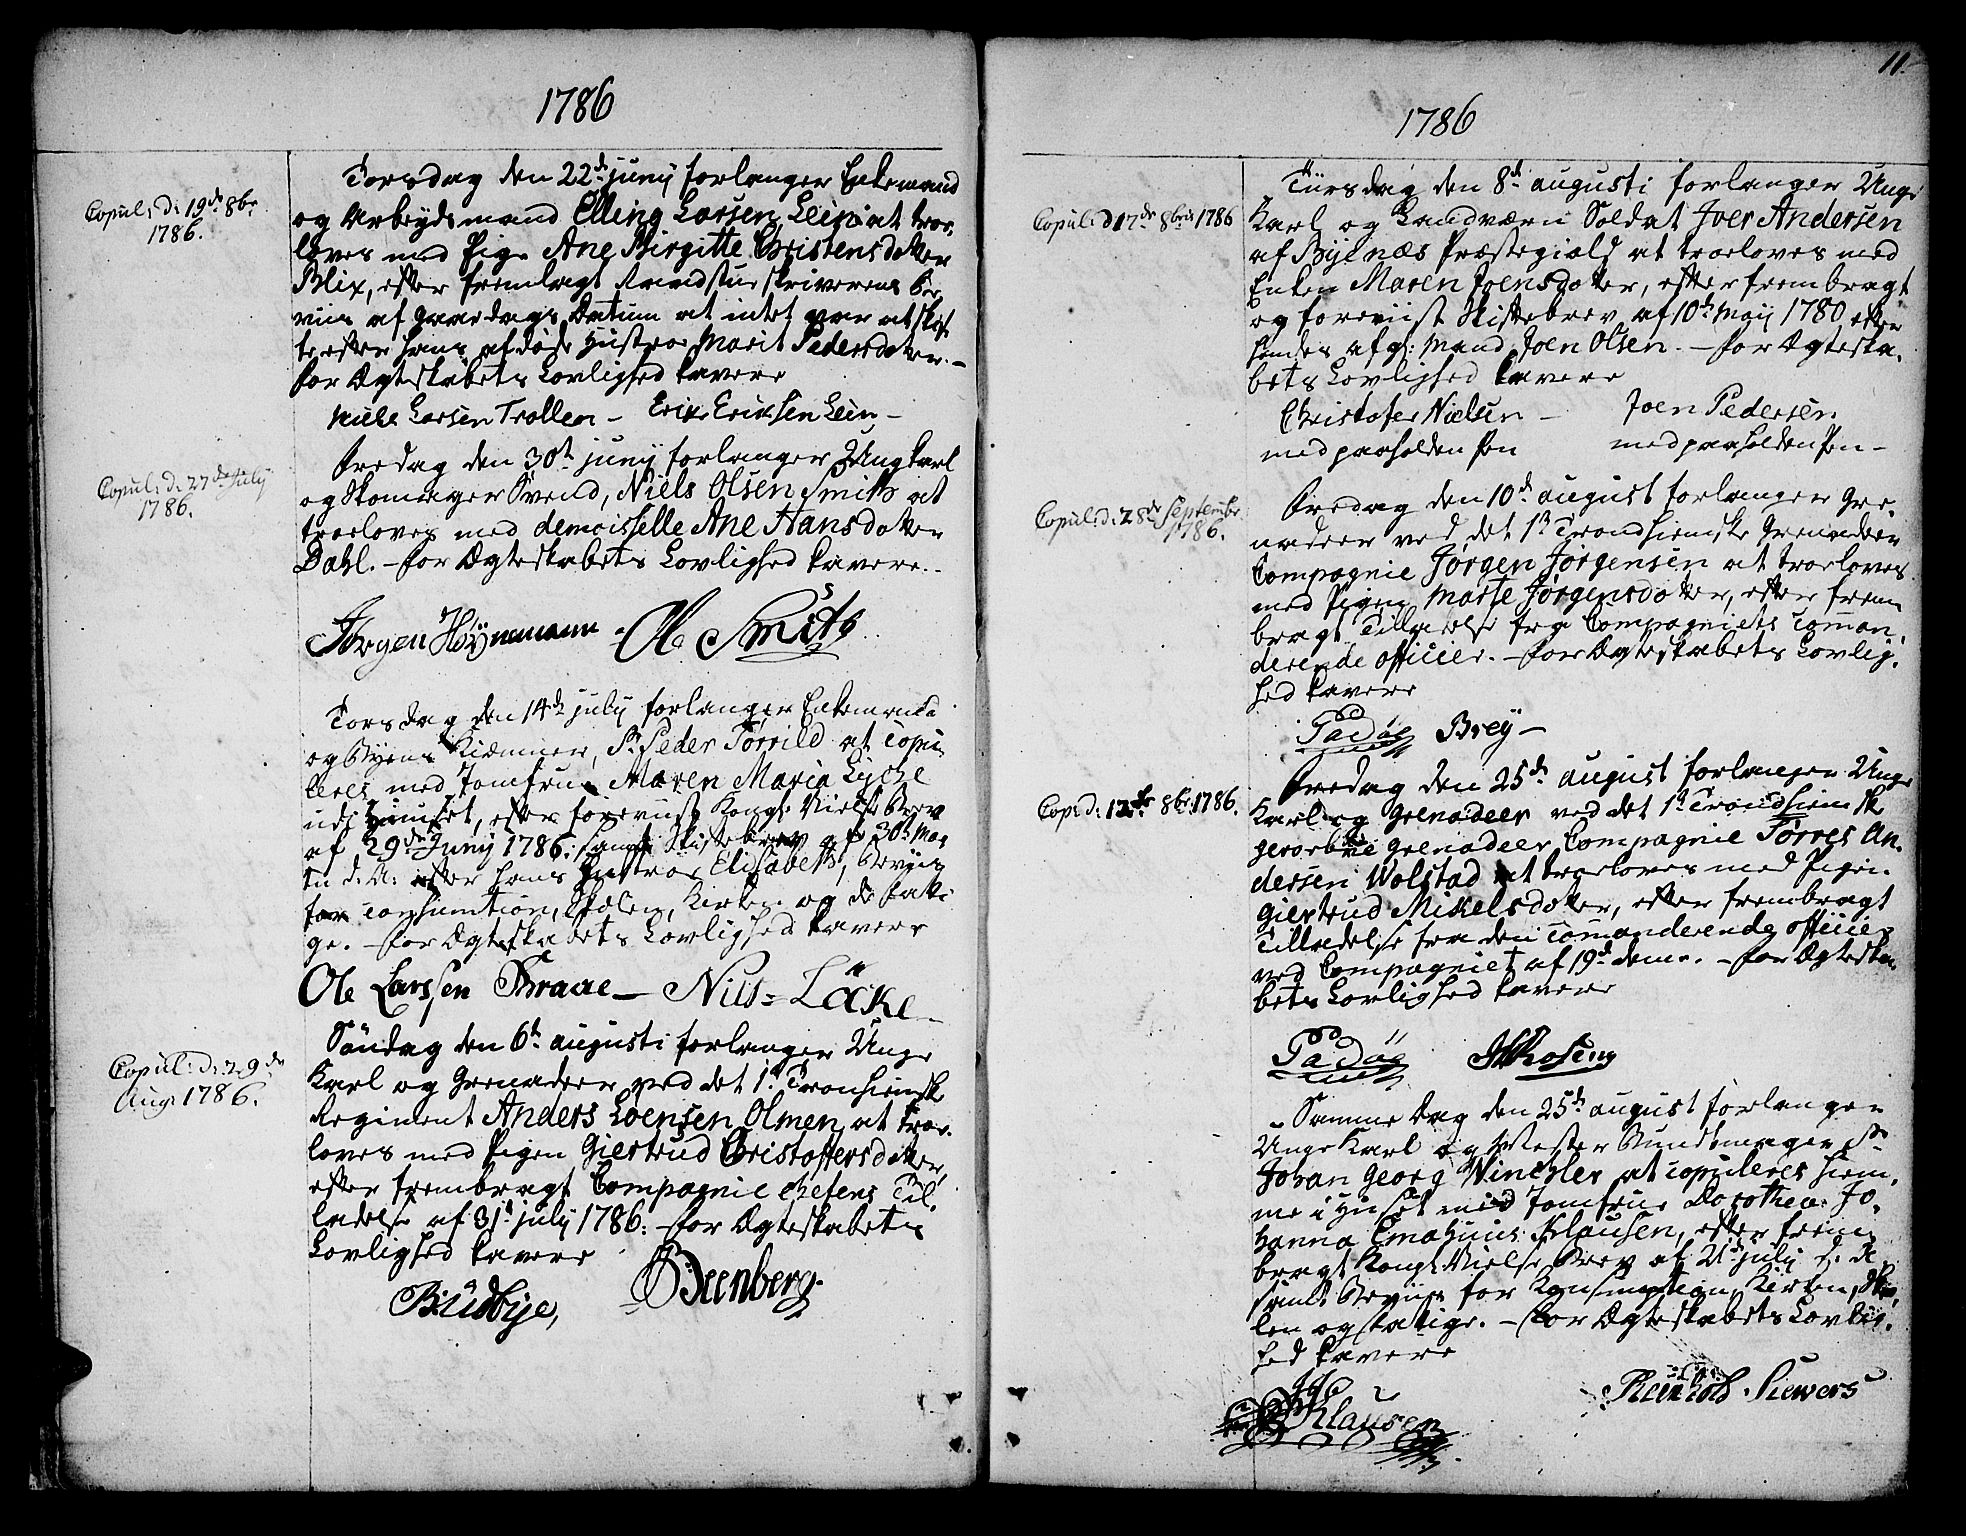 1786
Copul: d: 19de 8br
1786.
Torsdag den 22de juny forlanger Enkemand
og Arbeydsmand Elling Larsen Lein at troe-
loves med Pige Ane Birgitte Christensdotter
Blix, efter fremlagt Raadstueskriverens Be-
viis af Gaardags Datum at intet var at skif-
te efter hans afdøde Hustroe Marit Pedersdotter. -
for Ægteskabets Lovlighed cavere
Niels Larsen Trollen - Erik Eriksen Lein -
Copul: d: 27de July
1786.
Fredag den 30te juny forlanger Ungkarl
og Skomager Svend, Niels Olsen Smith at
troeloves med demoisselle Ane Hansdotter
Dahl. - for Ægteskabets Lovlighed cavere. -
Jørgen Höynemann - Ole Smith
Torsdag den 14de july forlanger Enkemand
og Byens Kiæmner, Sr. Peder Torrild at copu-
leres med Jomfrue Maren Maria Lyche
udi Huuset, efter foreviist Kongl: Vielse Brev
af 29de Juny 1786: samt Skiftebrev af 30te Mar
tii d. A: efter hans Hustroe Elisabeth, Beviis
for Consumtion, Skolen, Kirken og de fatti-
ge. - for Ægteskabets Lovlighed cavere
Ole Larssen Braae - Nils = Löcke -
Copul: d: 29de
Aug: 1786.
Söndag den 6te augusti forlanger Unge
Karl og Grenadeer ved det 1te Tronhiemske
Regiment Anders Loensen Olmen, at troe-
loves med Pigen Giertrud Christoffersdotter,
efter frembragt Compagnie Chefens Til-
ladelse af 31te july 1786: - for Ægteskabets
Lovlighed cavere
B: Udbye, Beenberg.
11.
1786
Copul: d 17de 8bris 1786
Tiirsdag den 8de augusti forlanger Unge
Karl og Landværn Soldat Iver Andersen
af Bynæs Præstegiæld at troeloves med
Enken Maren Joensdotter, efter frembragt
og foreviist Skiftebrev af 10de Maii 1780 efter
hendes afg: Mand Joen Olsen. - for Ægteska-
bets Lovlighed cavere
Christofer Nielsen - Joen Pedersen
med paaholden Pen med paaholden Pen -
Copul: d: 28de Septembr:
1786.
Fredag den 10de august forlanger Gre-
nadeer ved det 1te Trondhiemske Grenadeer
Compagnie Jørgen Jørgensen at troeloves
med Pigen Marte Jørgensdotter, efter frem
bragt Tilladelse fra Compagniets Coman-
derende officier. - for Ægteskabets Lovlig-
hed cavere
Padög Brey -
Cop: d: 12te 8br: 1786.
Fredag den 25de august forlanger Unge
Karl og Grenadeer ved det 1te Trondhiemske
geworbne Grenadeer Compagnie Torres An-
dersen Wolstad at troeloves med Pigen
Giertrud Mikelsdotter, efter frembragt
Tilladelse fra den Comanderende officier
ved Compagniet af 19de denne. - for Ægteska-
bets Lovlighed cavere
Padög Rosing
Samme Dag den 25de august forlanger
Unge Karl og Mester Bundtmager Sr.
Johan Georg Winchler at copuleres hiem-
me i Huset med Jomfrue Dorothea Jo-
hanna Emahuus Klausen, efter frem
bragt Kongl: Vielse Brev af 21de july d: A
samt Beviis for Konsumtion, Kirken, Sko-
len og Fattige. - for Ægteskabets Lovlig-
hed cavere
Klausen Reinhold Siewers